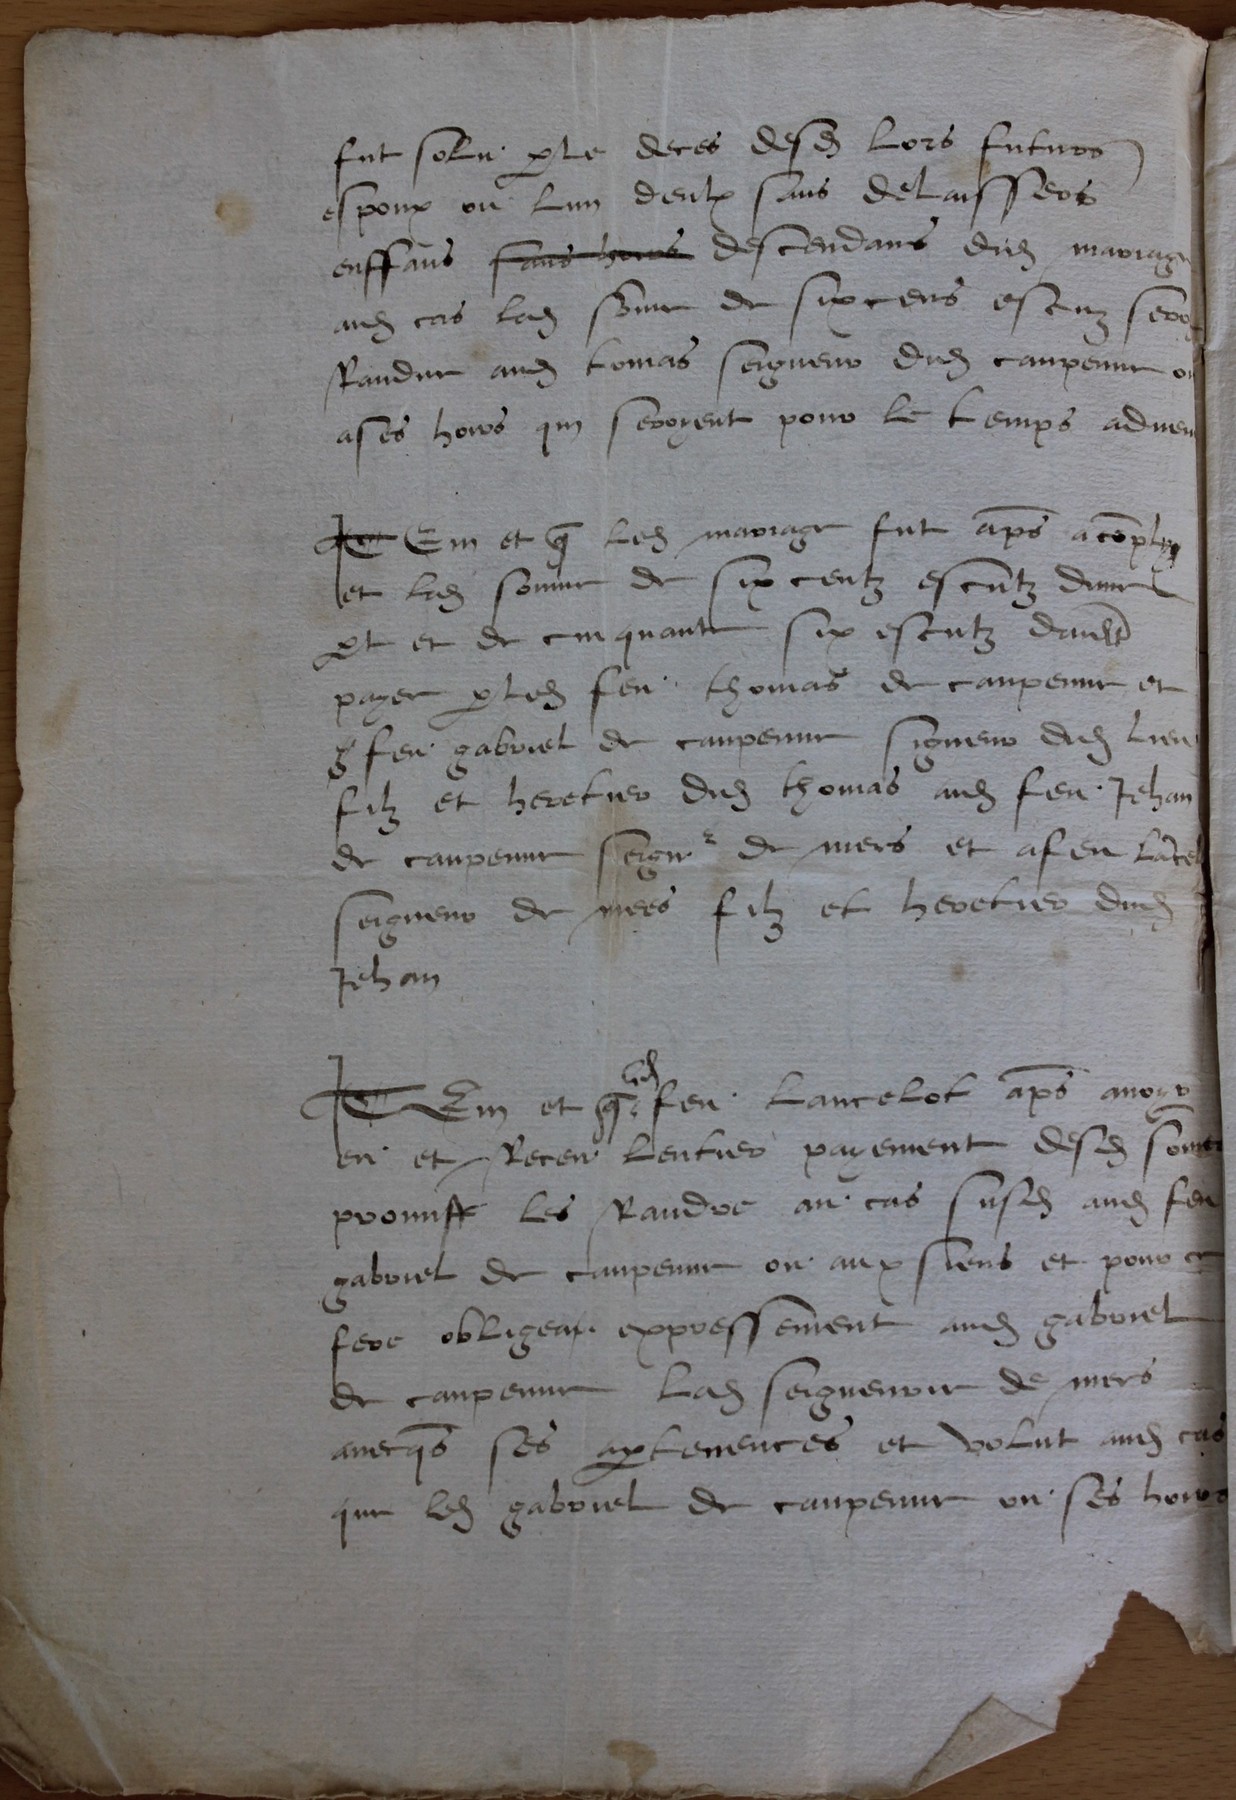 fut solu p le deces desd lors futurs
espoux ou lun deulx sans delaisser
enffans sans hoirs descendans dud mariage
aud cas lad some de six cens escutz seroy
Randue aud tomas seigneur dud caupenne ou
a ses hoirs qui seroyent pour le temps advenir
ITEm et q led mariage fut aps acomply
et lad somme de six centz escutz dune
pt et de cinquante six escutz dault
payee p led feu thomas de caupenne et
p feu gabriel de caupenne signeur dud lieu
filz et heretier dud thomas aud feu Jehan
de caupenne seignr de mers et a feu lacelot
seigneur de mees filz et heretier dud
Jehan
ITEm et q led feu Lancelot aps avoyr
eu et Receu lentier payement desd somes
promist les Randre au cas susd aud feu
gabriel de caupenne ou aux siens et pour ce
fere obligea expressement aud gabriel
de caupenne lad seigneurie de mers
avecqs ses aptenences et volut aud cas
que led gabriel de caupenne ou ses hoirs